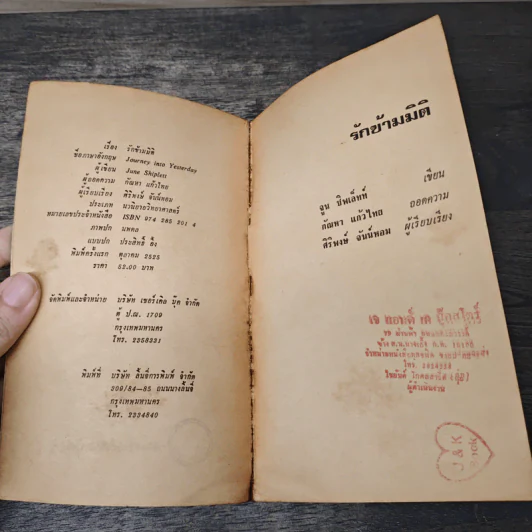 เรื่อง รักข้ามมิติ
ชื่อภาษาอังกฤษ Journey into Yesterday
ผู้เขียน June Shiplett
ผู้ถอดความ กัณหา แก้วไทย
ผู้เรียบเรียง ศิริพงษ์ จันน์หอม
ประเภท นวนิยายวิทยาศาสตร์
หมายเลขประจำหนังสือ ISBN 974 265 201 4
ภาพปก นพดล
แบบปก ประสิทธิ์ ฮั้ง
พิมพ์ครั้งแรก ตุลาคม 2525
ราคา 52.00 บาท
จัดพิมพ์และจำหน่าย บริษัท เซอร์เคิล บุ๊ค จำกัด
ตู้ ปณ. 1709
กรุงเทพมหานคร
โทร. 2558331
พิมพ์ที่ บริษัท การพิมพ์ จำกัด
209/84-85 ถนน
กรุงเทพมหานคร
โทร. 2234840
รักข้ามมิติ
จูน ชิพเล็ทท์ เขียน
กัณหา แก้วไทย ถอดความ
ศิริพงษ์ จันน์หอม ผู้เรียบเรียง
เจ แอนด์ เค
โทร.
ผู้ดำเนินงาน
J & K
Book